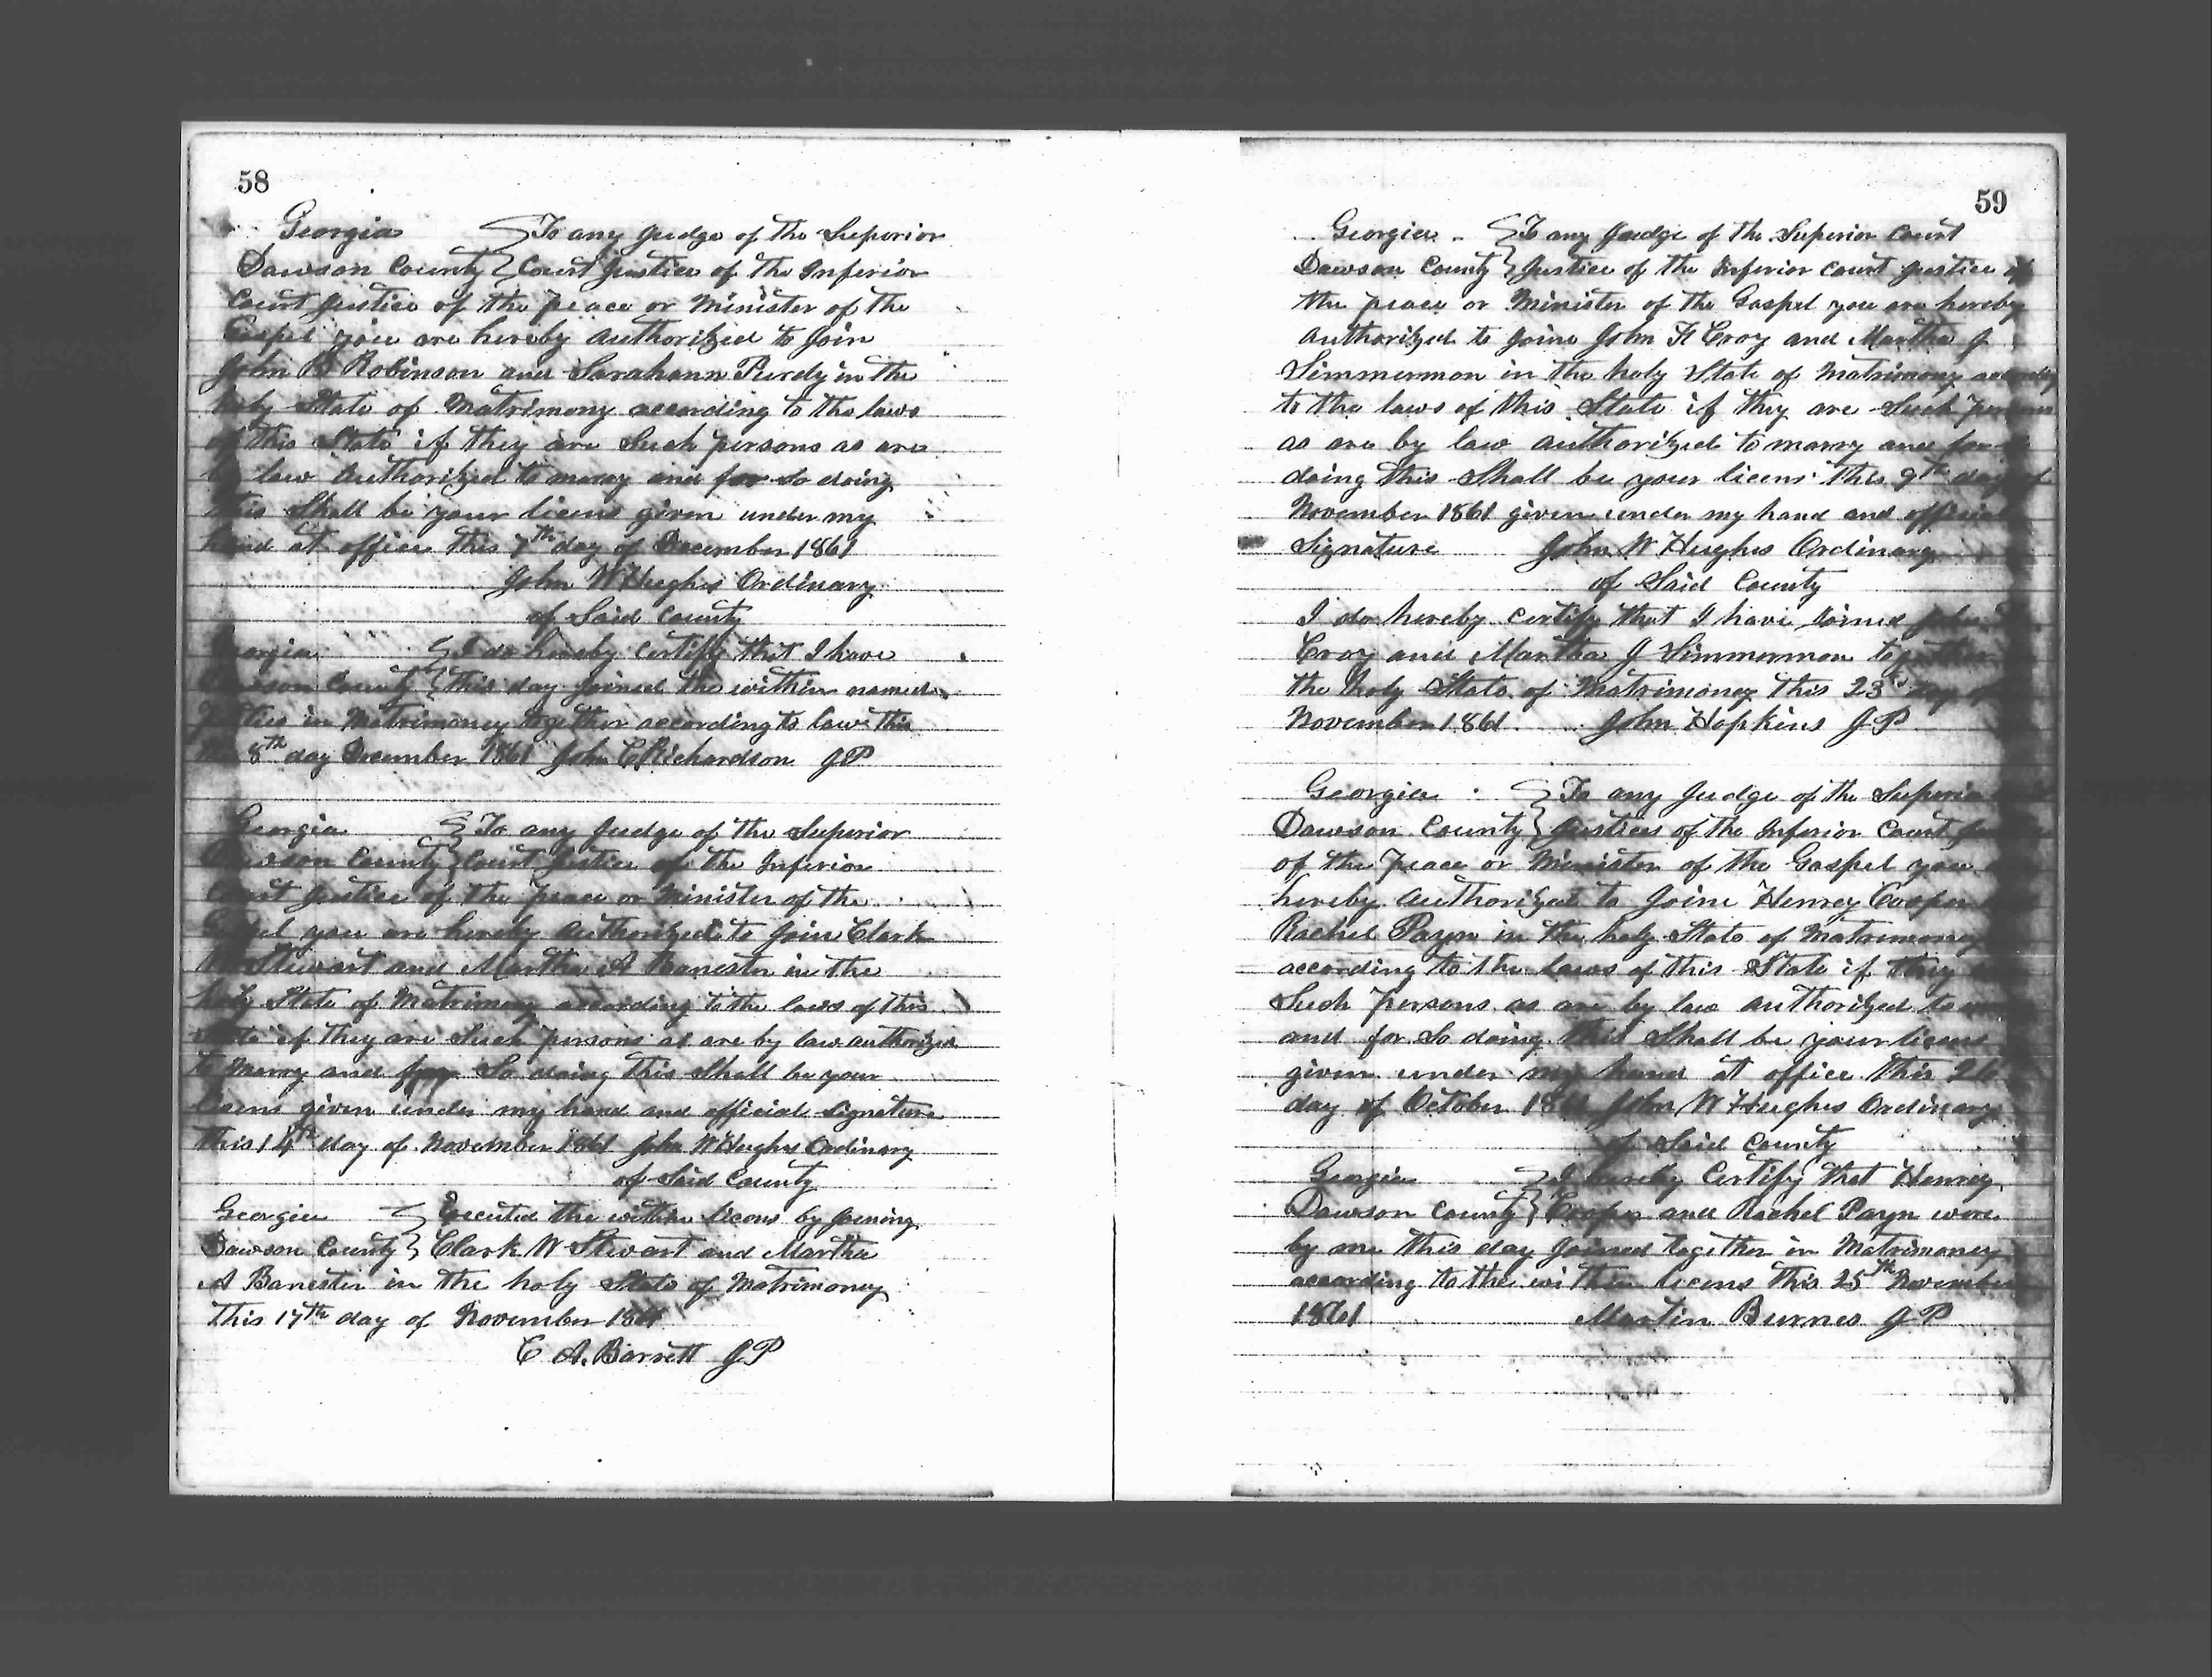 58
Georgia To any Judge of the Superior
Dawson County Court Justice of the Inferior
Court Justice of the peace or Minister of the
Gospel you are hereby authorized to Join
John B Robinson and Sarahann Purdy in the
holy State of Matrimony according to the laws
of this State if they are Such persons as are
by law authorized to marry and for So doing
this Shall be your licens given under my
hand at office this 7th day of December 1861
John W Hughs Ordinary
of Said County
Georgia I do hereby Certify that I have
Dawson County this day joined the within named
parties in Matrimoney together according to law this
the 8th day December 1861 John C Richardson JP
Georgia To any Judge of the Superior
Dawson County Court Justice of the Inferior
Court Justice of the peace or Minister of the
Gospel you are hereby authorized to Join Clark
W Stewart and Martha A Banester in the
holy State of Matrimony according to the laws of this
State if they are Such persons as are by law authorized
to Marry and for So doing this Shall be your
licens given under my hand and official Signature
this 14th day of November 1861 John W Hughs Ordinary
of Said County
Georgia Executed the within licens by Joining
Dawson County Clark W Stewart and Martha
A Banester in the holy State of Matrimoney
this 17th day of November 1861
C A. Barrett JP
59
Georgia To any Judge of the Superior Court
Dawson County Justice of the Inferior Court Justice of
the peace or Minister of the Gospel you are hereby
authorized to Joine John H Croy and Martha J
Simmermon in the holy State of Matrimony according
to the laws of this State if they are Such persons
as are by law authorized to marry and for
doing this Shall be your licens this 9th day of
November 1861 given under my hand and official
Signature John W Hughs Ordinary
of Said County
I do hereby certify that I have Joined John
Croy and Martha J Simmermon together
the holy State of Matrimoney this 23rd day of
November 1861. John Hopkins JP
Georgia To any Judge of the Superior
Dawson County Justices of the Inferior Court
of the peace or Minister of the Gospel you
hereby authorized to Joine Henrey Cooper
Rachel Payn in the holy State of Matrimoney
according to the laws of this State if they
Such persons as are by law authorized to
and for So doing this Shall be your licens
given under my hand at office this 26
day of October 1861 John W Hughs Ordinary
of Said County
Georgia I hereby Certify that Henrey
Dawson County Cooper and Rachel Payn were
by me this day Joined together in Matrimoney
according to the within licens this 25th November
1861 Martin Burnes JP